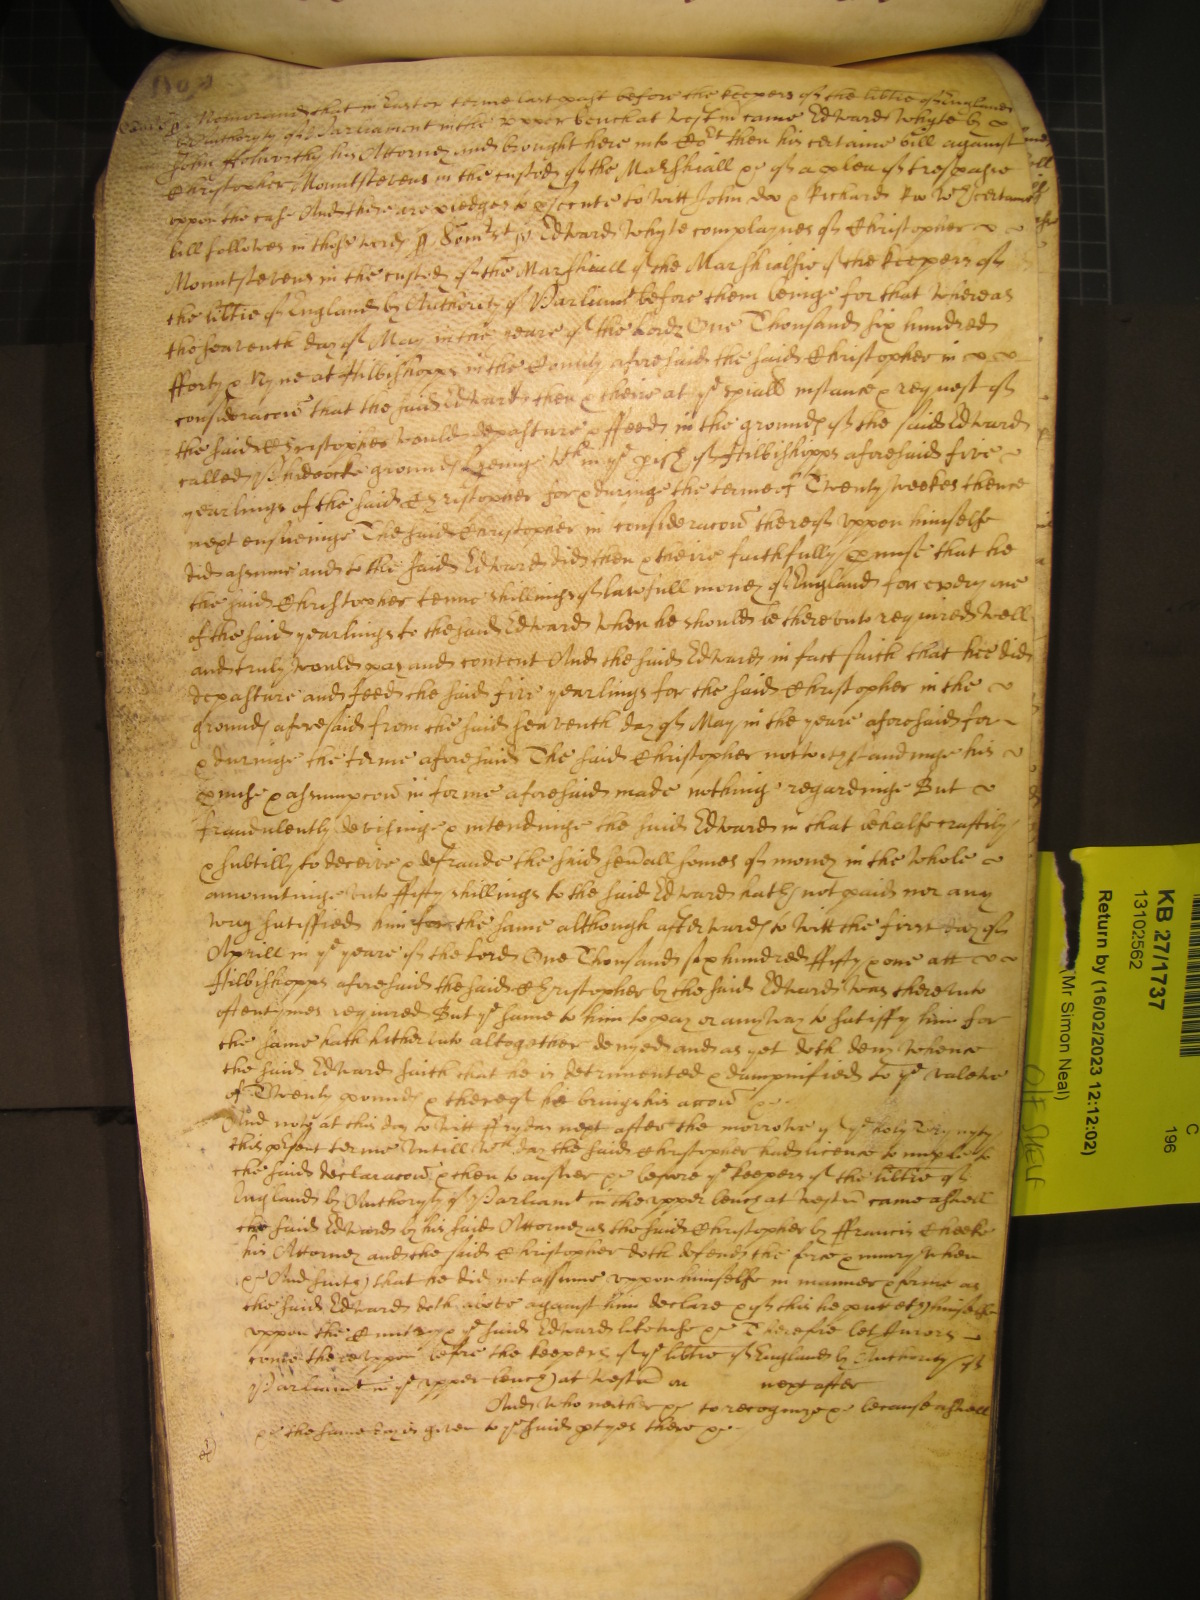 Memorand that in Easter terme last past before the keepers of the libtie of England
by Authority of Parliament in the upper bench at Westm came Edward Whyte by
John his Attorney and brought here into Cort then his certaine bill against
Christopher Mountstevens in the custody of the Marshall &c of a plea of trespasse
uppon the case And there are pledges to psecute to witt John doo & Richard Roo wch certaine
bill followes in these words ss Somst ss Edward Whyte complaynes of Christopher
Mountstevens in the custody of the Marshall of the Marshalsie of the keepers of
the libtie of England by Authority of Parliamt before them beinge for that whereas
the seaventh day of May in the yeare of the Lord One Thousand six hundred
fforty & Nyne at Hilbishopps in the County aforesaid the said Christopher in
consideracon that the said Edward then & theire at ye spiall instance & request of
the said Christopher would depasture & ffeed in the grounds of the said Edward
called grounds lyeinge wthin ye pish of Hilbishopps aforesaid five
yearlings of the said Christopher for & duringe the terme of Twenty weekes thence
next ensueinge The said Christopher in consideracon thereof uppon himselfe
did assume and to the said Edward did then & theire faithfully pmise that he
the said Christopher tenne shillings of lawfull money of England for every one
of the said yearlings to the said Edward when he should be thereunto required well
and truly would pay and content And the said Edward in fact saith that hee did
depasture and feed the said five yearlings for the said Christopher in the
grounds aforesaid from the said seaventh day of May in the yeare aforesaid for
& duringe the terme aforesaid The said Christopher notwithstandinge his
pmise & assumpcon in forme aforesaid made nothinge regardinge But
fraudulently devisinge & intendinge the said Edward in that behalfe craftily
& subtilly to deceive & defraude the said sevall somes of money in the whole
amountinge unto ffifty shillings to the said Edward hath not paid nor any
way satisfied him for the same although afterwards to witt the first day of
Aprill in ye yeare of the Lord One Thousand six hundred ffifty & one att
Hilbishopps aforesaid the said Christopher by the said Edward was thereunto
oftentymes required But ye same to him to pay or any way to satisfy him for
the same hath hitherunto altogether denyed and as yet doth deny whence
the said Edward saith that he is detrimented & dampnified to ye valewe
of Twenty pounds & thereof he brings his accon &c
And nowe at this day to witt ffryday next after the morrowe of ye holy Trynyty
this psent terme untill wch day the said Christopher had licence to imple to
the said declaracon & then to answer &c before ye keepers of the libtie of
England by Authority of Parliamt in the upper bench at Westm came aswell
the said Edward by his said Attorney as the said Christopher by ffrancis Cheeke
his Attorney and the said Christopher doth defend the force & iniury when
&c And saith that he did not assume uppon himselfe in manner & forme as
the said Edward doth above against him declare & of this he putteth himselfe
uppon the Cuntry & ye said Edward likewise &c Therefore let Jurors
come thereuppon before the keepers of ye libtie of England by Authority of
Parliamt in ye upper bench at Westm on next after
And who neither &c to recognize &c because aswell
&c the same day is given to ye said ptyes there &c
KB 27/1737
13102562
Return by (16/02/2023 12:12:02)
(Mr Simon Neal)
C
196
O/F SHELF